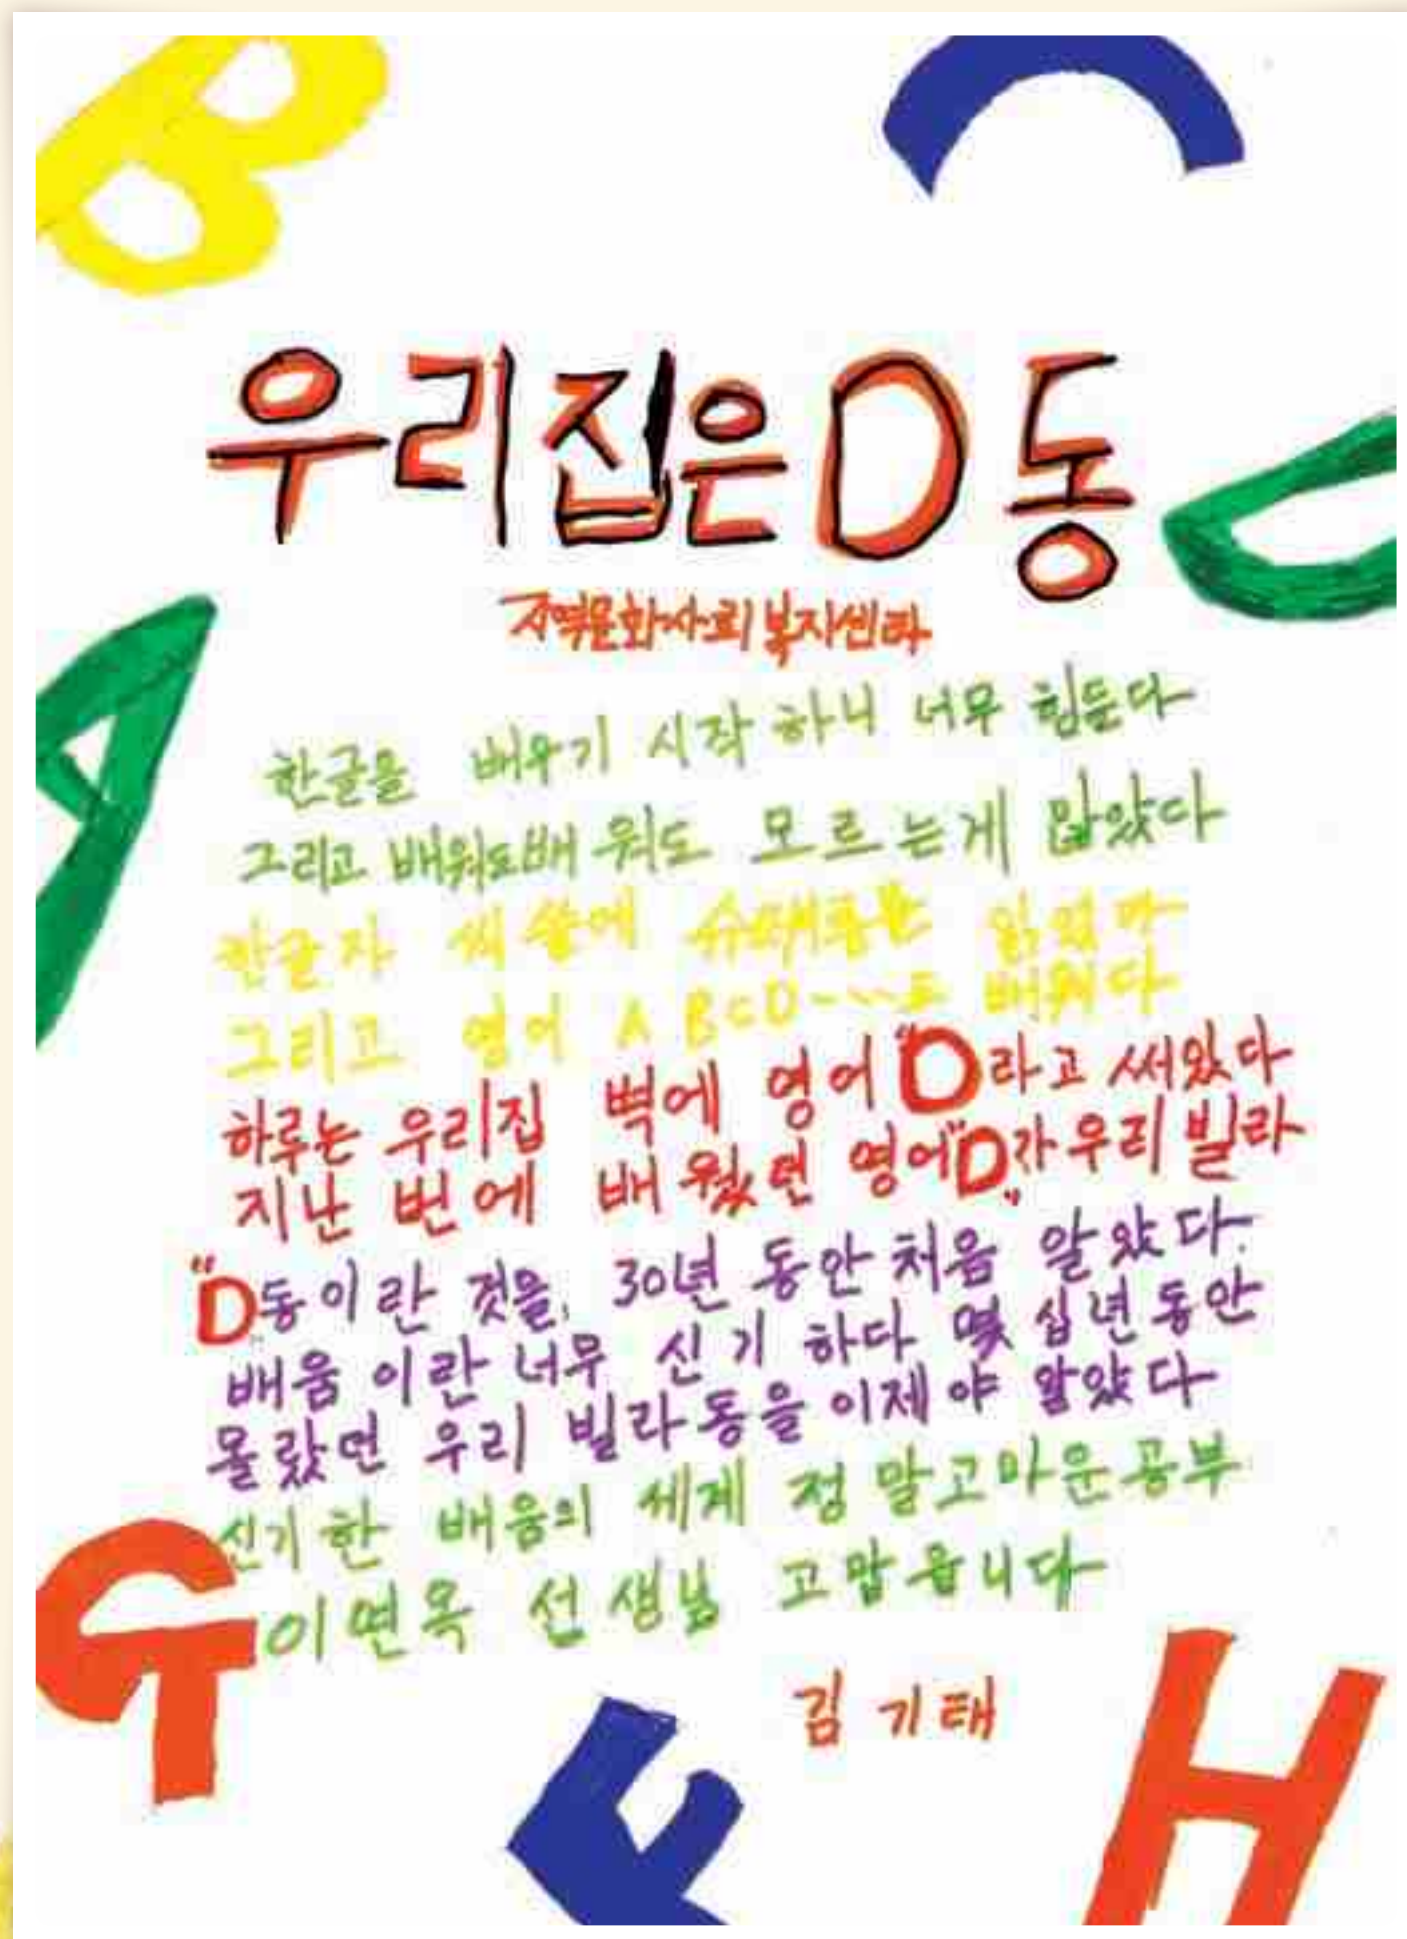 우리집은 D동
지역문화사회복지센타
한글을 배우기 시작 하니 너무 힘든다
그리고 배워도배 워도 모르 는게 많았다
한글자 씩 쓸에
그리고 영어 A B C D ----- 도 배웠다
하루는 우리집 벽에 영어 "D라고 써있다
지난 번에 배 웠던 영어"D"가 우리 빌라
"D동이란 것을, 30년 동안 처음 알았다.
배움 이란 너무 신기 하다 몇 십년동안
몰랐던 우리 빌라동을 이제 야 알았다
신기한 배움의 세계 정 말고마운공부
이면옥 선생님 고맙 습니다
김 기 태
B
C
A
G
F
H